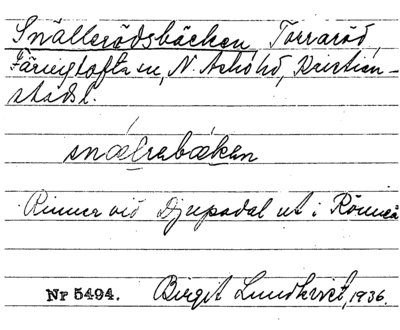 Snällerödsbäcken, Torraröd,
Färingtofta sn, N. Åsbo hd, Kristian-
stads l.
snælrabækan
Rinner vid Djupadal ut i Rönneå
Nr 5494. Birgit Lundkvist, 1936.